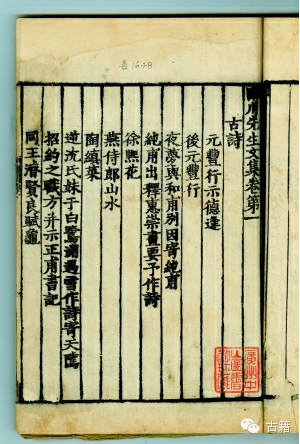 善1648
先生文集卷第一
古詩
元豐行示德逢
後元豐行
夜夢與和甫別因寄純甫
純甫出釋惠崇畫要予作詩
徐熙花
燕侍郎山水
陶縝菜
逆沈氏妹于白鷺洲遇雪作詩寄天隲
招約之職方并示正甫書記
同王濬賢良賦龜
古籍